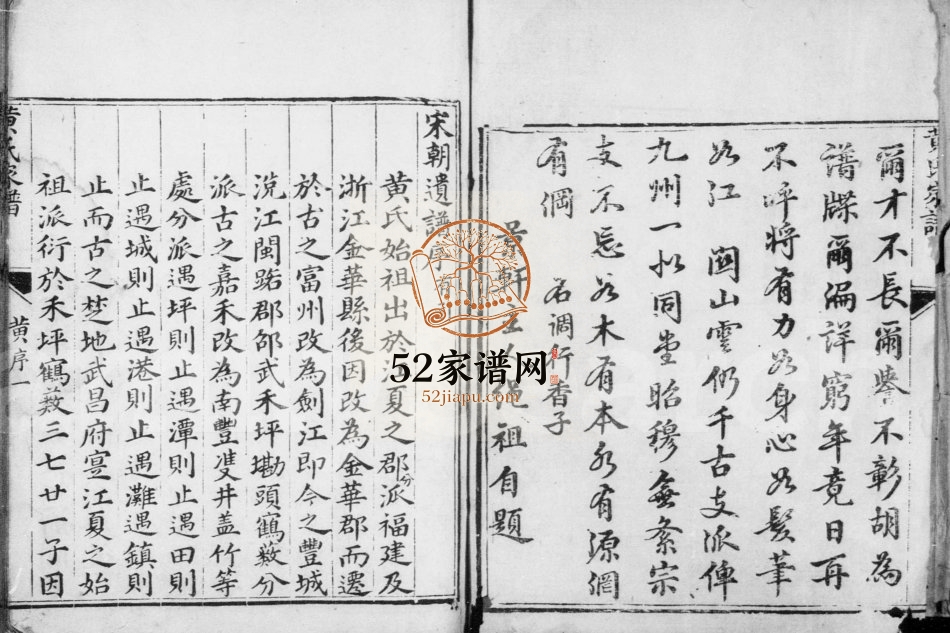 黄氏家譜
爾才不長爾譽不彰胡為
譜牒爾偏詳窮年竟日再
不呼將有力如身心如髮筆
如江 關山雲仍千古支派俾
九州一如同堂昭穆無紊宗
支不忘如木有本水有源網
有綱 右調行香子
軒 繩祖自題
宋朝遺譜序
黃氏始祖出於江夏之郡分派福建及
浙江金華縣後因改為金華郡而遷
於古之富州改為劍江即今之豐城
江閩 郡邵武禾坪 頭鶴薮分
派古之嘉禾改為南豐雙井蓋竹等
處分派遇坪則止遇潭則止遇田則
止遇城則止遇港則止遇灘遇鎮則
止而古之楚地武昌府寔江夏之始
祖派衍於禾坪鶴薮三七廿一子因
黄氏家譜
黄序一
52家谱网
52jiapu.com